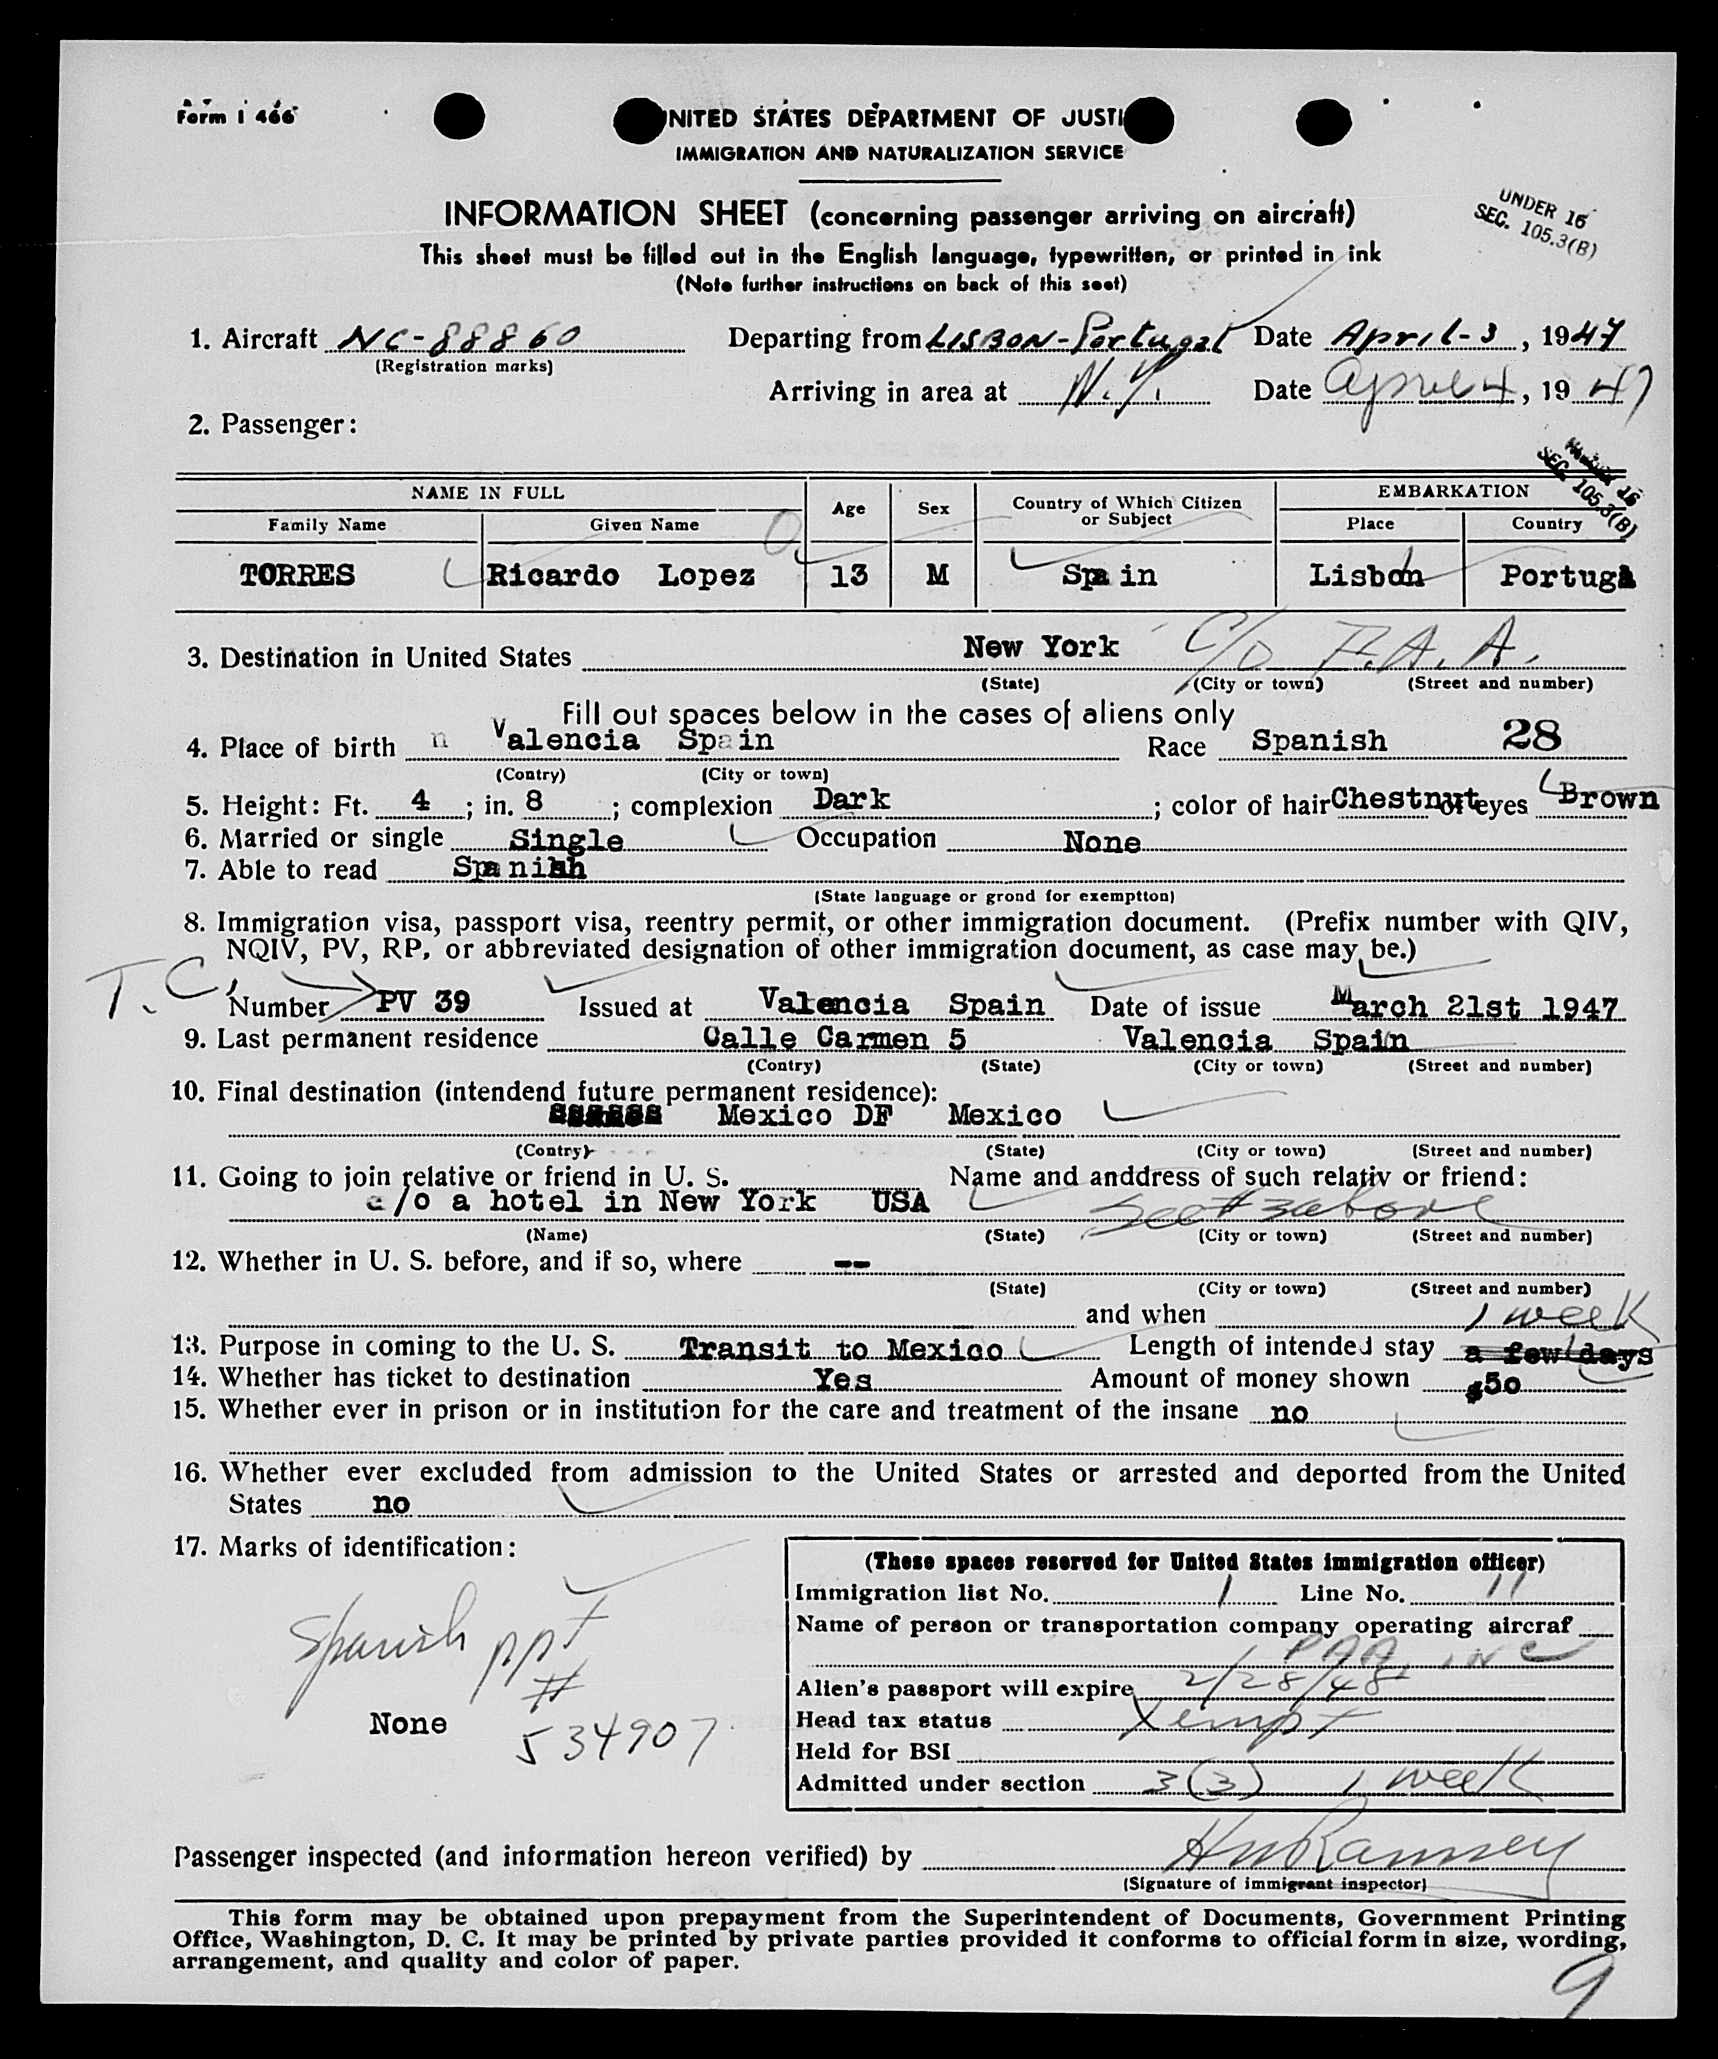 Form I 466
UNITED STATES DEPARTMENT OF JUSTI
IMMIGRATION AND NATURALIZATION SERVICE
INFORMATION SHEET (concerning passenger arriving on aircraft)
UNDER 16
SEC. 105.3(B)
This sheet must be filled out in the English language, typewritten, or printed in ink
(Note further instructions on back of this seet)
1. Aircraft NC-88860 Departing from LISBON-Portugal Date April-3, 1947
(Registration marks)
Arriving in area at N.Y. Date April 4, 1947
2. Passenger:
16
SEC. 105.3(B)
NAME IN FULL Age Sex Country of Which Citizen or Subject EMBARKATION
Family Name Given Name Place Country
TORRES Ricardo Lopez 13 M Spain Lisbon Portugal
3. Destination in United States New York C/O P.A.A.
(State) (City or town) (Street and number)
Fill out spaces below in the cases of aliens only
4. Place of birth n Valencia Spain Race Spanish 28
(Contry) (City or town)
5. Height: Ft. 4; in. 8; complexion Dark; color of hair Chestnut of eyes Brown
6. Married or single Single Occupation None
7. Able to read Spanish
(State language or grond for exemption)
8. Immigration visa, passport visa, reentry permit, or other immigration document. (Prefix number with QIV,
NQIV, PV, RP, or abbreviated designation of other immigration document, as case may be.)
T.C. Number PV 39 Issued at Valencia Spain Date of issue March 21st 1947
9. Last permanent residence Calle Carmen 5 Valencia Spain
(Contry) (State) (City or town) (Street and number)
10. Final destination (intendend future permanent residence):
Mexico DF Mexico
(Contry) (State) (City or town) (Street and number)
11. Going to join relative or friend in U. S. Name and anddress of such relativ or friend:
c/o a hotel in New York USA See #3 above
(Name) (State) (City or town) (Street and number)
12. Whether in U. S. before, and if so, where --
(State) (City or town) (Street and number)
and when 1 week
13. Purpose in coming to the U. S. Transit to Mexico Length of intended stay a few days
14. Whether has ticket to destination Yes Amount of money shown $50
15. Whether ever in prison or in institution for the care and treatment of the insane no
16. Whether ever excluded from admission to the United States or arrested and deported from the United
States no
17. Marks of identification:
Spanish ppt
#
None 534907
(These spaces reserved for United States immigration officer)
Immigration list No. 1 Line No. 11
Name of person or transportation company operating aircraf
PAA, INC
Alien's passport will expire 2/28/48
Head tax status Xempt
Held for BSI
Admitted under section 3(3) 1 week
Passenger inspected (and information hereon verified) by HW Ramsey
(Signature of immigrant inspector)
This form may be obtained upon prepayment from the Superintendent of Documents, Government Printing
Office, Washington, D. C. It may be printed by private parties provided it conforms to official form in size, wording,
arrangement, and quality and color of paper.
9